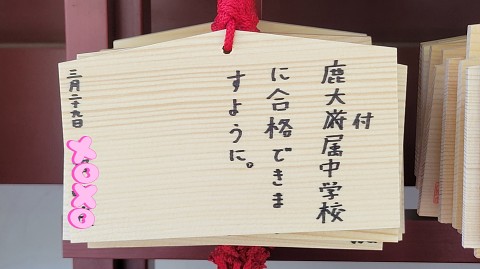 鹿大府属中学校
付
に合格できま
すように。
三月二十九日
XOXO